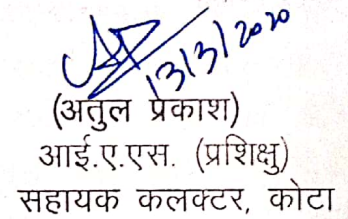 13/3/2020
(अतुल प्रकाश)
आई.ए.एस. (प्रशिक्षु)
सहायक कलक्टर, कोटा